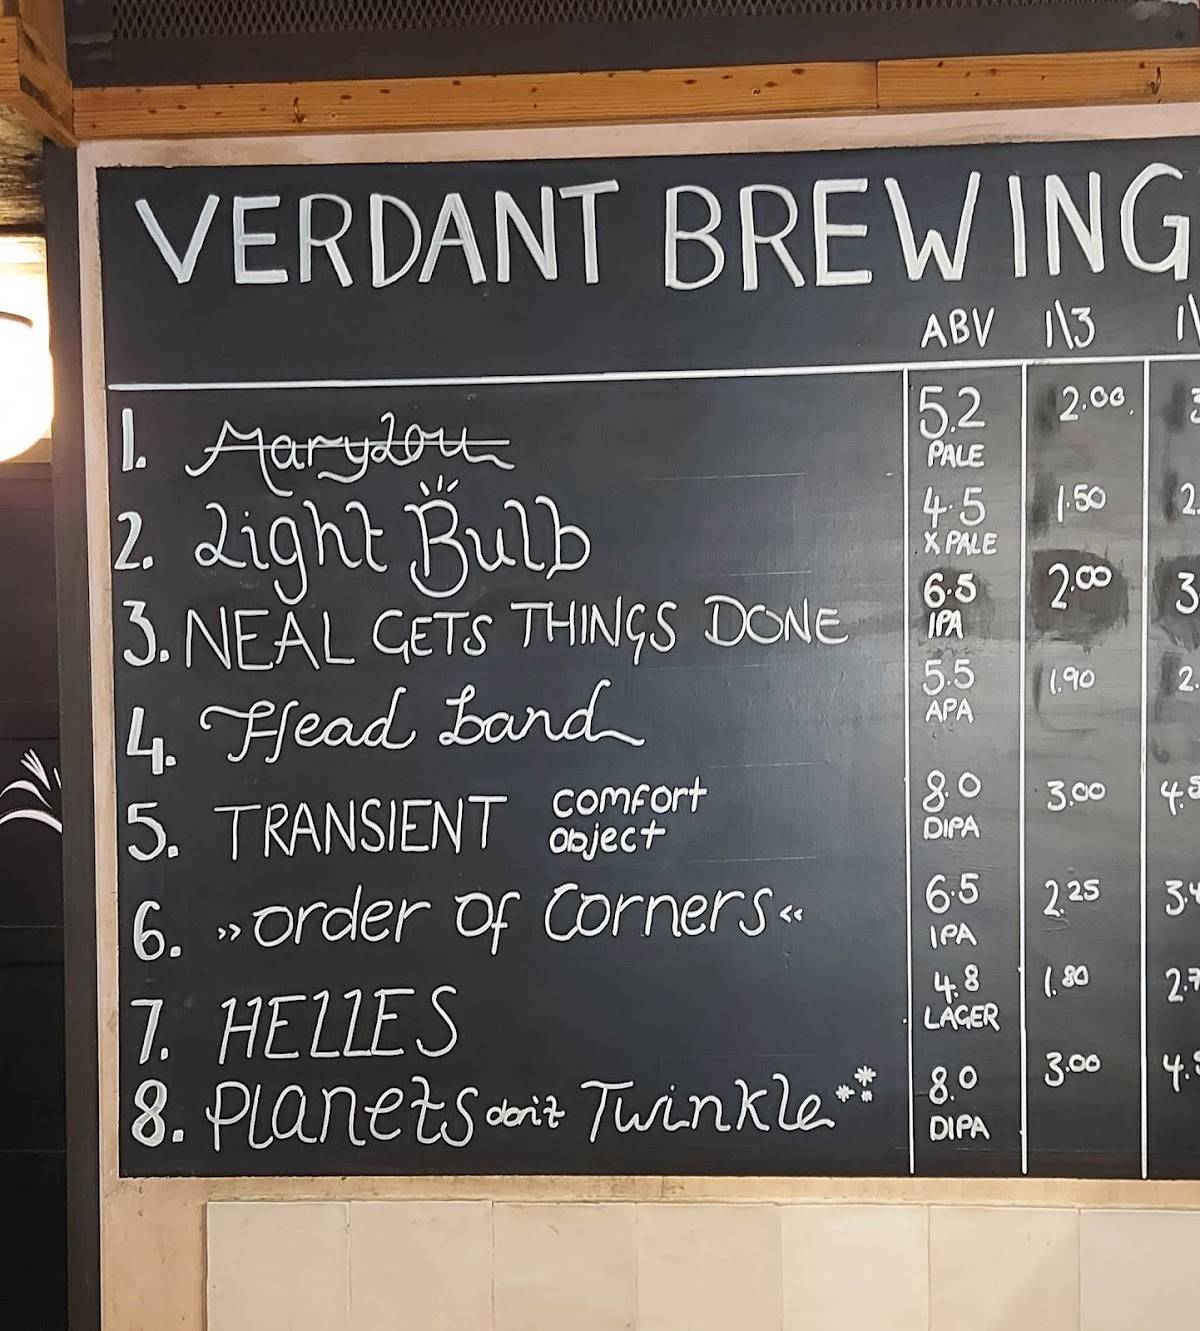 VERDANT BREWING
ABV 1\3
1. MaryLou 5.2 PALE 2.00
2. Light Bulb 4.5 X PALE 1.50
3. NEAL GETS THINGS DONE 6.5 IPA 2.00
4. Head band 5.5 APA 1.90
5. TRANSIENT comfort object 8.0 DIPA 3.00
6. »order of Corners« 6.5 IPA 2.25
7. HELLES 4.8 LAGER 1.80
8. Planets don't Twinkle 8.0 DIPA 3.00